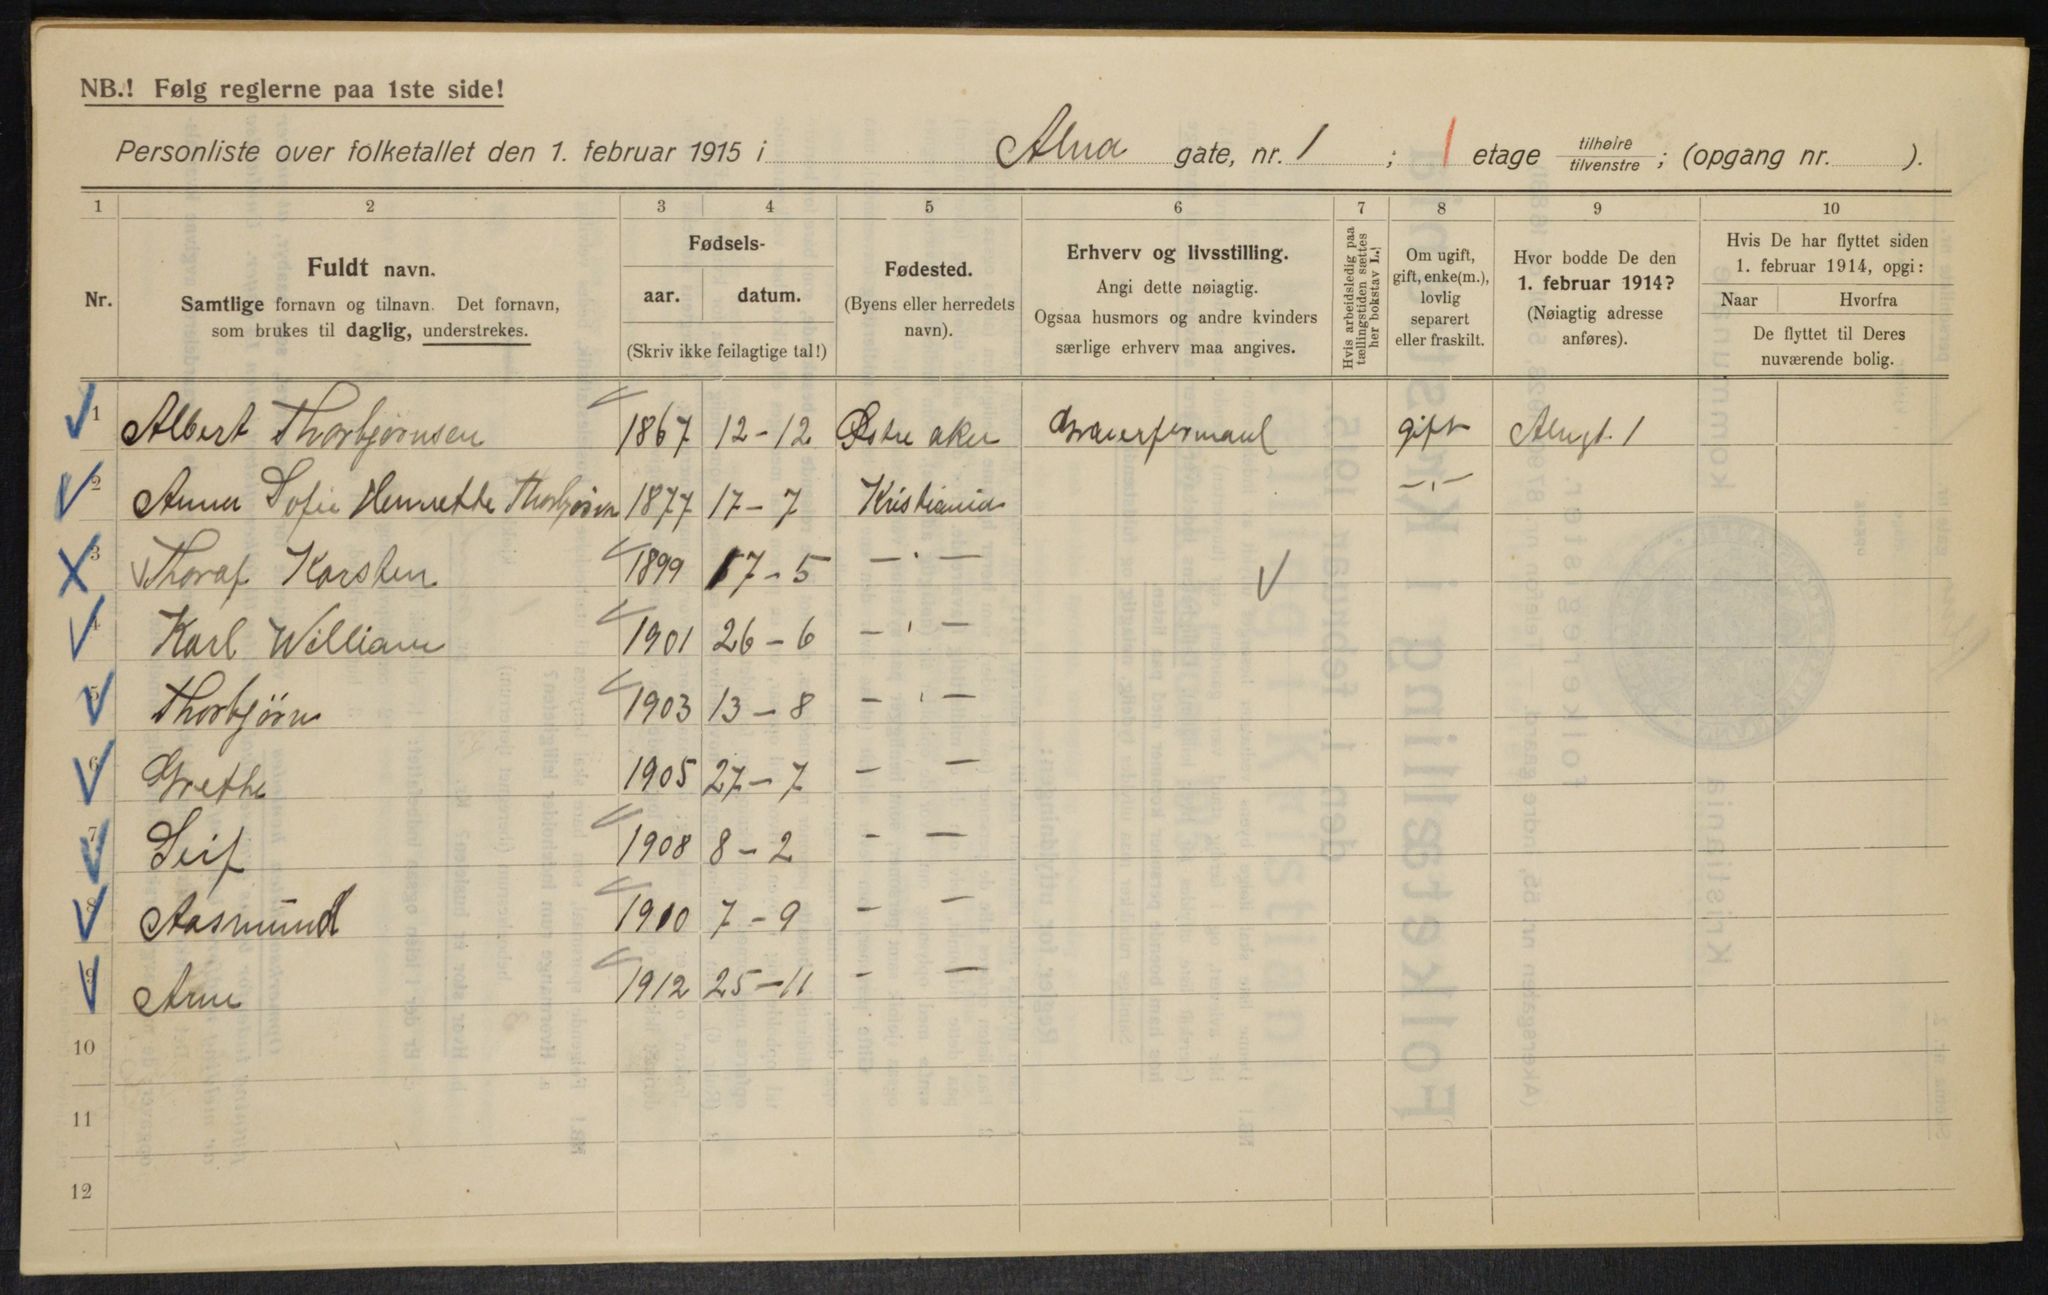 NB.! Følg reglerne paa 1ste side!
Personliste over folketallet den 1. februar 1915 i Alna gate, nr. 1 ; 1 etage tilhøire/tilvenstre ; (opgang nr. ).
1 2 3 4 5 6 7 8 9 10
Nr.
Fuldt navn.
Samtlige fornavn og tilnavn. Det fornavn,
som brukes til daglig, understrekes.
Fødsels-
aar. datum.
(Skriv ikke feilagtige tal!)
Fødested.
(Byens eller herredets
navn).
Erhverv og livsstilling.
Angi dette nøiagtig.
Ogsaa husmors og andre kvinders
særlige erhverv maa angives.
Hvis arbeidsledig paa
tællingstiden sættes
her bokstav L.!
Om ugift,
gift, enke(m.),
lovlig
separert
eller fraskilt.
Hvor bodde De den
1. februar 1914?
(Nøiagtig adresse
anføres).
Hvis De har flyttet siden
1. februar 1914, opgi:
Naar Hvorfra
De flyttet til Deres
nuværende bolig.
1 Albert Thorbjørnsen 1867 12-12 Østre aker gift Alnagt. 1
2 Anna Sofie Henriette Thorbjørn 1877 17-7 Kristiania -"-
3 Thoraf Karsten 1899 17-5 -"-
4 Karl William 1901 26-6 -"-
5 Thorbjørn 1903 13-8 -"-
6 Grethe 1905 27-7 - -
7 Leif 1908 8-2 - -
8 Aasmund 1910 7-9 - -
9 Arne 1912 25-11 - -
10
11
12